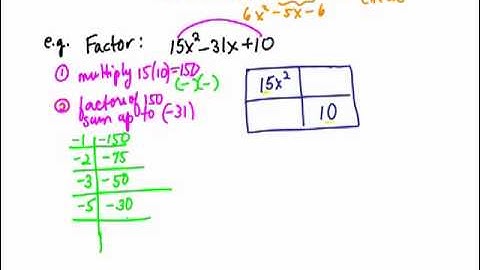 6x² - 5x - 6
e.g. Factor: 15x² - 31x + 10
① multiply 15(10) = 150
(-)(-)
② factors of 150
sum up to (-31)
15x²
10
-1 -150
-2 -75
-3 -50
-5 -30